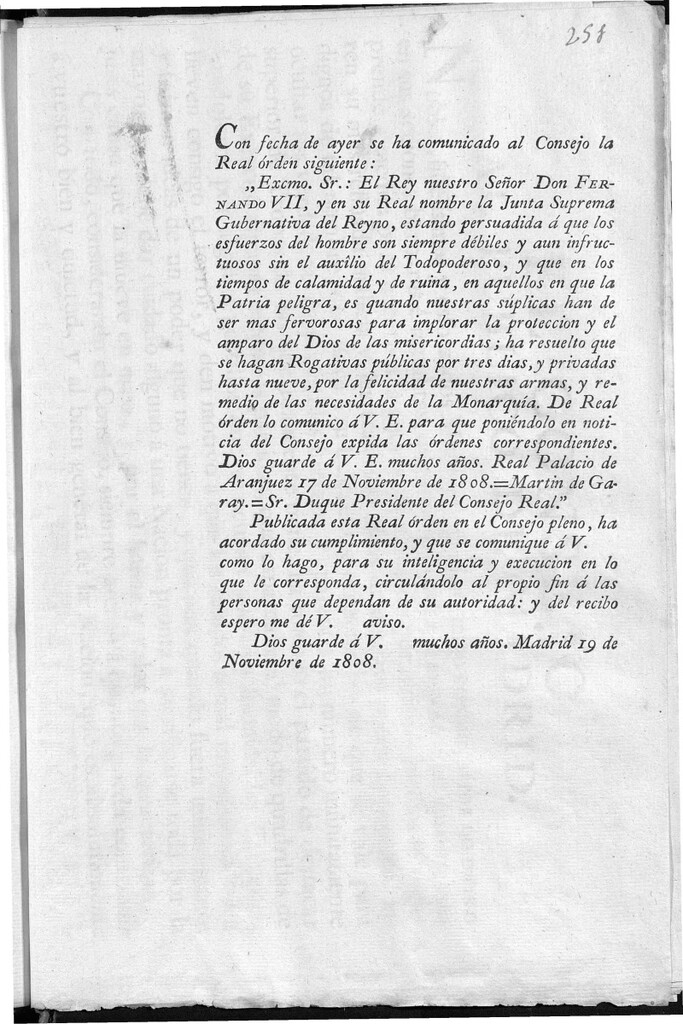 258
Con fecha de ayer se ha comunicado al Consejo la
Real órden siguiente:
„Excmo. Sr.: El Rey nuestro Señor Don FER-
NANDO VII, y en su Real nombre la Junta Suprema
Gubernativa del Reyno, estando persuadida á que los
esfuerzos del hombre son siempre débiles y aun infruc-
tuosos sin el auxîlio del Todopoderoso, y que en los
tiempos de calamidad y de ruina, en aquellos en que la
Patria peligra, es quando nuestras súplicas han de
ser mas fervorosas para implorar la proteccion y el
amparo del Dios de las misericordias; ha resuelto que
se hagan Rogativas públicas por tres dias, y privadas
hasta nueve, por la felicidad de nuestras armas, y re-
medio de las necesidades de la Monarquía. De Real
órden lo comunico á V. E. para que poniéndolo en noti-
cia del Consejo expida las órdenes correspondientes.
Dios guarde á V. E. muchos años. Real Palacio de
Aranjuez 17 de Noviembre de 1808.=Martin de Ga-
ray.=Sr. Duque Presidente del Consejo Real."
Publicada esta Real órden en el Consejo pleno, ha
acordado su cumplimiento, y que se comunique á V.
como lo hago, para su inteligencia y execucion en lo
que le corresponda, circulándolo al propio fin á las
personas que dependan de su autoridad: y del recibo
espero me dé V. aviso.
Dios guarde á V. muchos años. Madrid 19 de
Noviembre de 1808.